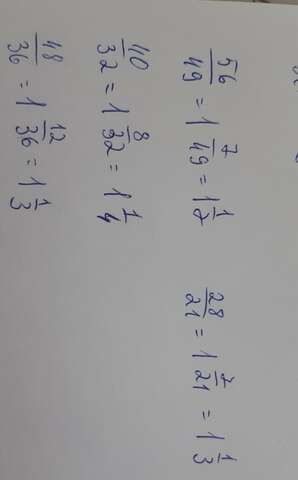 56/49 = 1 7/49 = 1 1/7 28/21 = 1 7/21 = 1 1/3
40/32 = 1 8/32 = 1 1/4
48/36 = 1 12/36 = 1 1/3